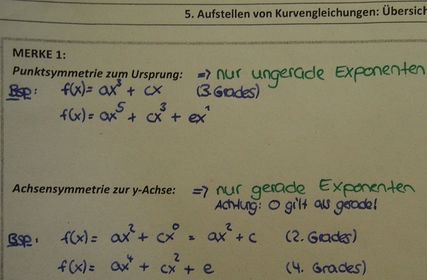 5. Aufstellen von Kurvengleichungen: Übersich
MERKE 1:
Punktsymmetrie zum Ursprung: => nur ungerade Exponenten
Bsp: f(x)= ax³ + cx (3. Grades)
f(x)= ax⁵ + cx³ + ex¹
Achsensymmetrie zur y-Achse: => nur gerade Exponenten
Achtung: 0 gilt als gerade!
Bsp: f(x)= ax² + cx⁰ = ax² + c (2. Grades)
f(x)= ax⁴ + cx² + e (4. Grades)